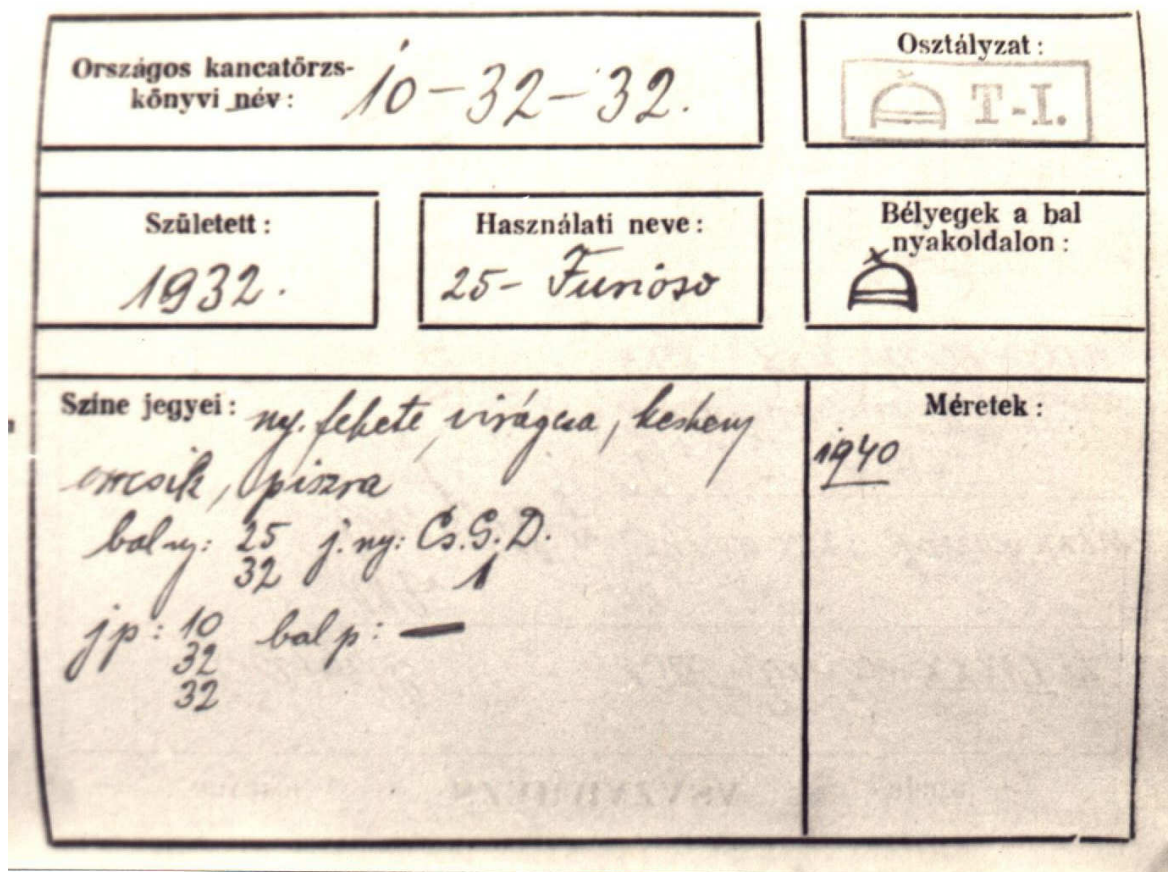 Országos kancatörzs-
könyvi név: 10-32-32.
Osztályzat:
T-I.
Született:
1932.
Használati neve:
25- Furioso
Bélyegek a bal
nyakoldalon:
Színe jegyei: ny. fekete, virágcsa, keskeny
orrcsik, piszra
bal ny: 25 j. ny: Cs.G.D.
32 1
jp: 10 bal p: —
32
32
Méretek:
1940